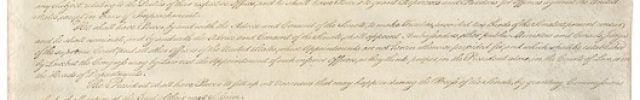 any subject relating to the Duties of their respective Offices, and he shall have Power to grant Reprieves and Pardons for Offences against the United
States, except in Cases of Impeachment.
He shall have Power, by and with the Advice and Consent of the Senate, to make Treaties, provided two thirds of the Senators present concur;
and he shall nominate, and by and with the Advice and Consent of the Senate, shall appoint Ambassadors, other public Ministers and Consuls, Judges
of the supreme Court, and all other Officers of the United States, whose Appointments are not herein otherwise provided for, and which shall be established
by Law: but the Congress may by Law vest the Appointment of such inferior Officers, as they think proper, in the President alone, in the Courts of Law, or in
the Heads of Departments.
The President shall have Power to fill up all Vacancies that may happen during the Recess of the Senate, by granting Commissions